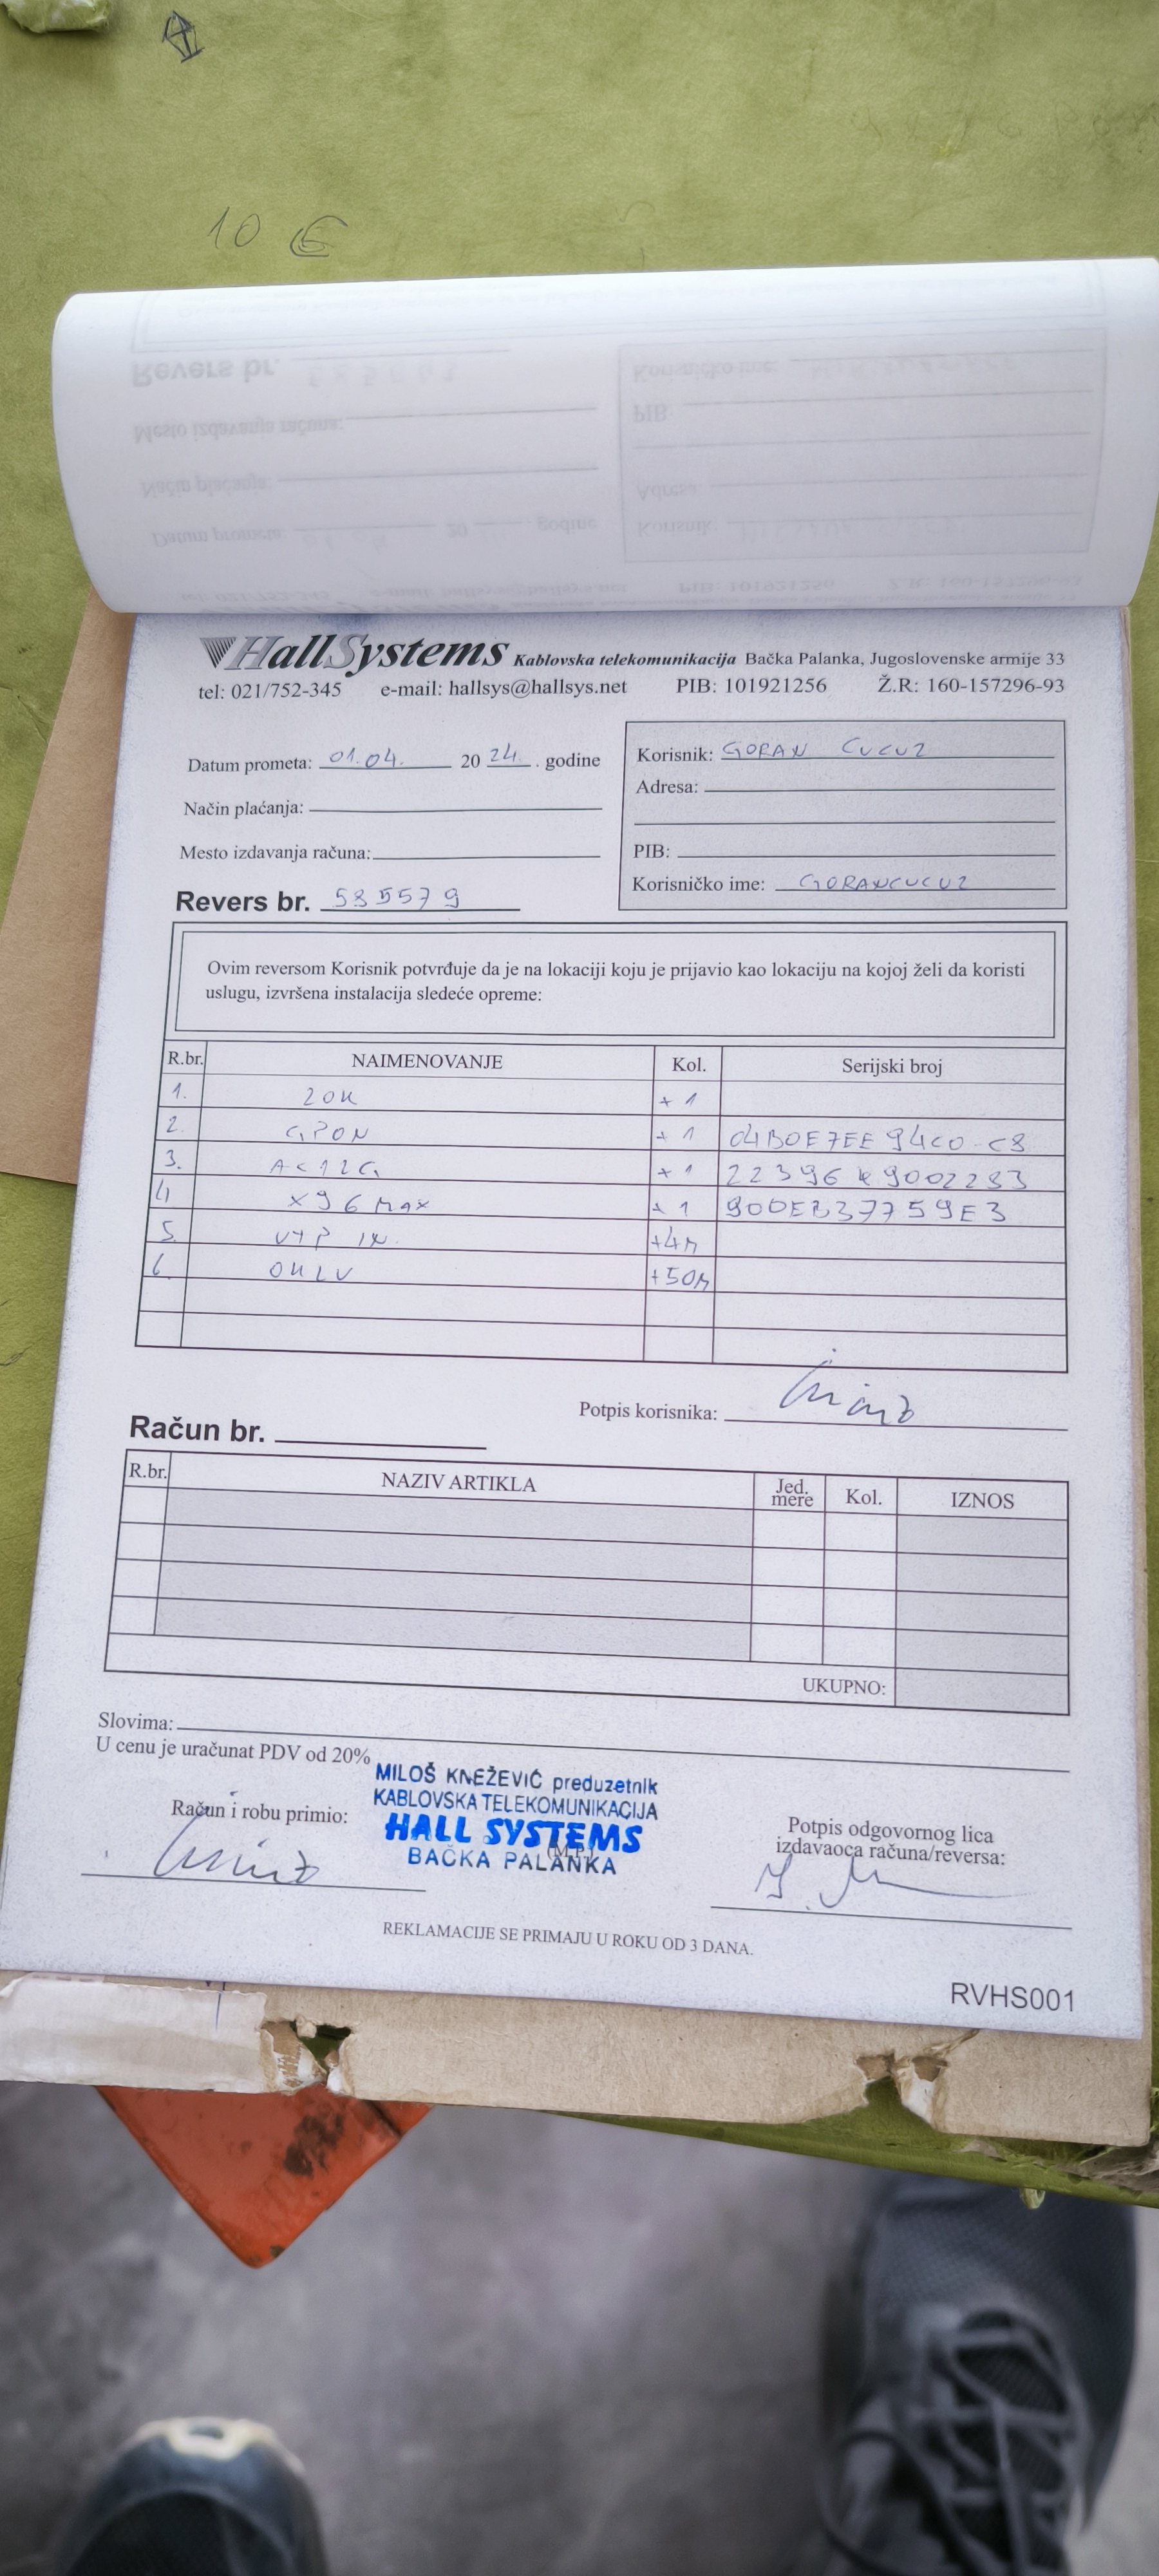 10 €
HallSystems Kablovska telekomunikacija Bačka Palanka, Jugoslovenske armije 33
tel: 021/752-345 e-mail: hallsys@hallsys.net PIB: 101921256 Ž.R: 160-157296-93
Datum prometa: 01.04. 20 24. . godine
Način plaćanja:
Mesto izdavanja računa:
Revers br. 585579
Korisnik: GORAN CUCUZ
Adresa:
PIB:
Korisničko ime: GORANCUCUZ
Ovim reversom Korisnik potvrđuje da je na lokaciji koju je prijavio kao lokaciju na kojoj želi da koristi
uslugu, izvršena instalacija sledeće opreme:
R.br. NAIMENOVANJE Kol. Serijski broj
1. ZOK +1
2. GPON +1 04B0E7EE94C0-C8
3. AC12G +1 22396K9002283
4 X96 MAX +1 90DEB37759E3
5. UTP IN. +4M
6. OKLV +50M
Potpis korisnika:
Račun br.
R.br. NAZIV ARTIKLA Jed. mere Kol. IZNOS
UKUPNO:
Slovima:
U cenu je uračunat PDV od 20%
MILOŠ KNEŽEVIĆ preduzetnik
KABLOVSKA TELEKOMUNIKACIJA
HALL SYSTEMS
BAČKA PALANKA
(M.P.)
Račun i robu primio:
Potpis odgovornog lica
izdavaoca računa/reversa:
REKLAMACIJE SE PRIMAJU U ROKU OD 3 DANA.
RVHS001